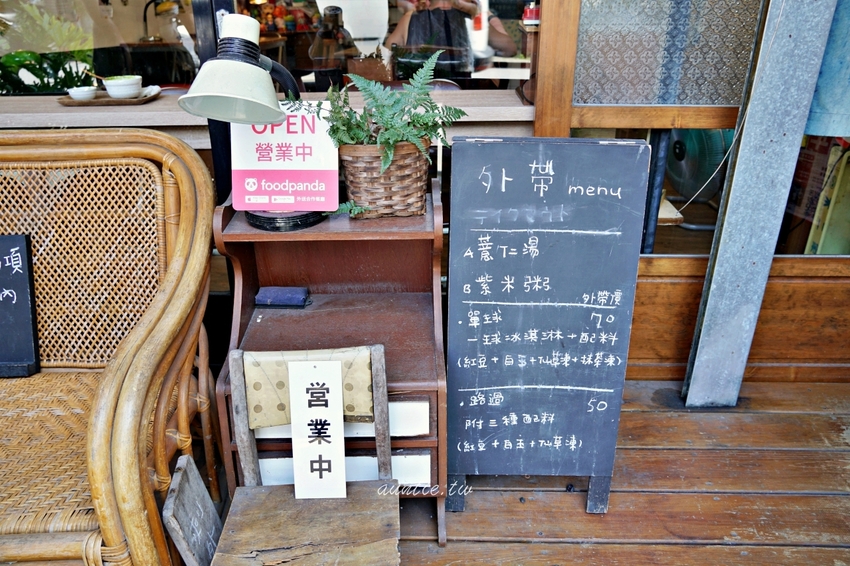 OPEN
營業中
foodpanda
営業中
項
內
外帶 menu
テイクアウト
A 薏仁湯
B 紫米粥
外帶價
・單球 70
一球冰淇淋+配料
(紅豆+白玉+仙草凍+抹茶凍)
・路過 50
附三種配料
(紅豆+白玉+仙草凍)
auntie.tw